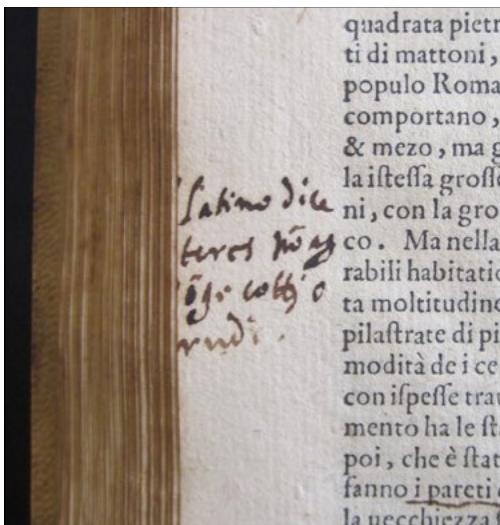 latino dice
teres nō
rudi.
quadrata pietr
ti di mattoni,
populo Roma
comportano,
& mezo, ma g
la iſteſſa groſſe
ni, con la gro
co. Ma nella
rabili habitatio
ta moltitudine
pilaſtrate di pi
modità de i ce
con iſpeſſe trau
mento ha le ſta
poi, che è ſtat
fanno i pareti
la uecchiezza